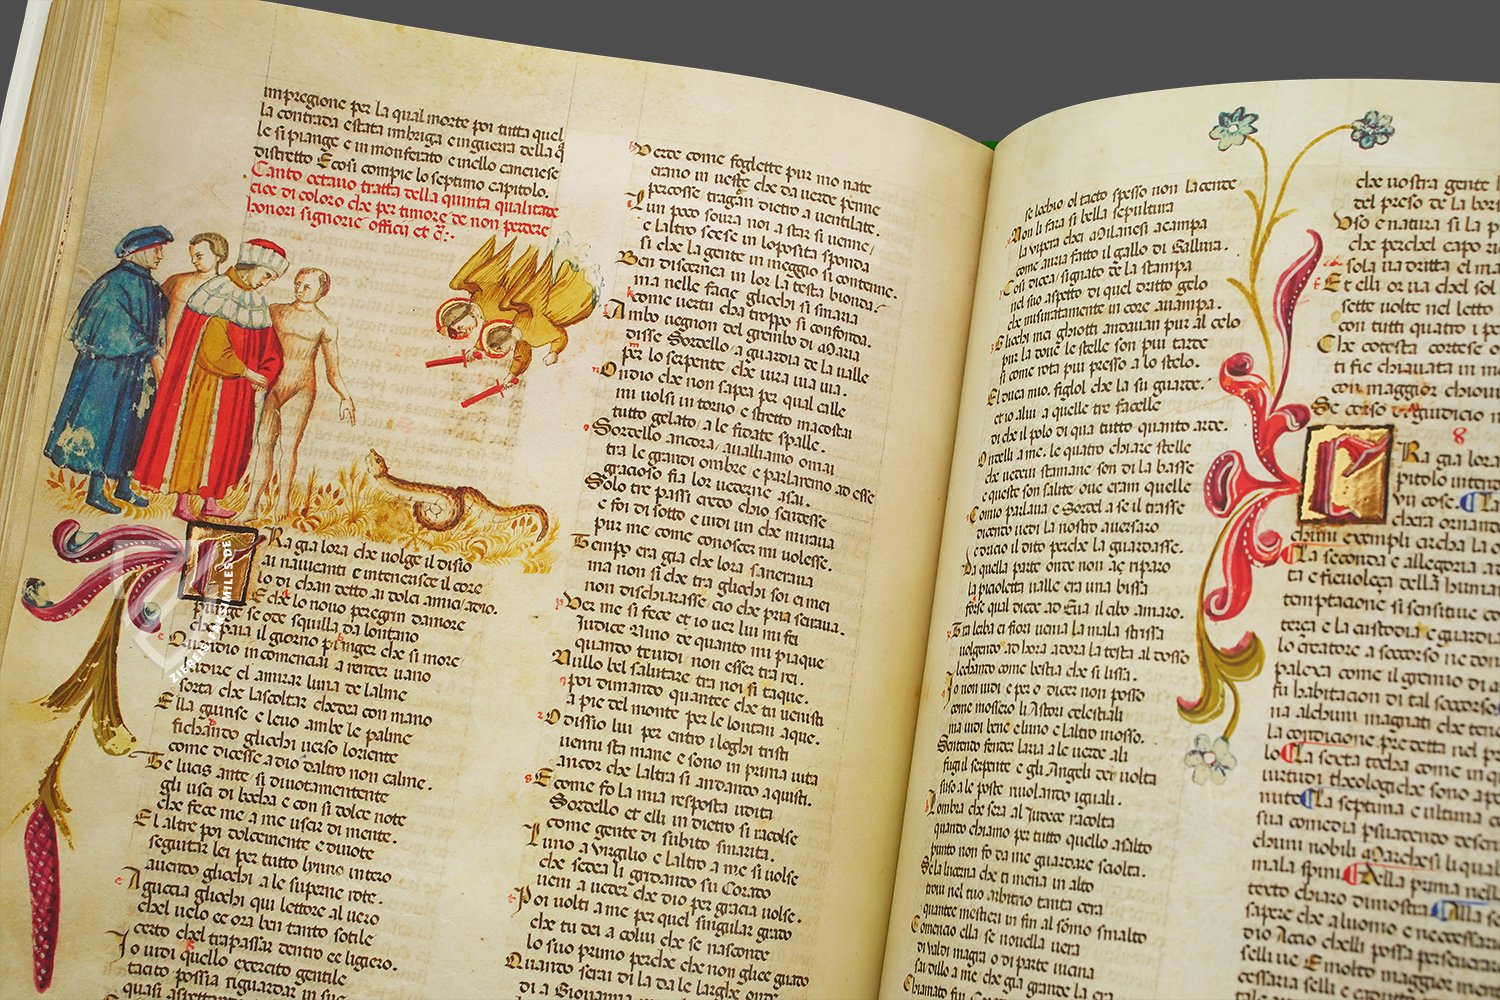 impregione per la qual morte poi tutta quel
la contrada e stata imbriga e inguerra della q̄
le si piange e in monferato e inello canevese
distretto E cosi compie lo septimo capitolo.
Canto octavo tratta della quinta qualitade
cioe di coloro che per timore de non perdere
honori signorie officii et c̄:-
Era gia lora che volge il disio
ai navicanti e intenerisce il core
lo di chan detto ai dolci amici adio.
E che lo novo peregrin damore
punge se ode squilla da lontano
che paia il giorno pianger che si more
Quandio incomenciai a render vano
ludire el amirar luna de lalme
sorta che lascoltar chedea con mano
Ella giunse e levo ambe le palme
fichando gliochi verso loriente
come dicesse a dio daltro non calme.
Te lucis ante si divotamentente
gli usci di bocha e con si dolce note
che fece me a me uscir di mente.
El altre poi dolcemente e divote
seguitar lei per tutto lynno intero
avendo gliochi a le superne rote.
Aguccia gliochi qui lettore al vero
chel velo ee ora ben tanto sotile
certo chel trapassar dentro ee ligiero.
Io vidi quello exercito gentile
tacito possia riguardar in sue
quasi aspettan
Verde come foglette pur mo nate
erano in veste che da verde penne
percosse tragan dietro a ventilate.
Lun poco soura noi a star si venne
e laltro scese in loposita sponda
si che la gente in meggio si contenne.
Ben discernea in lor la testa bionda
ma nelle facie gliochi si smaria
come vertu cha troppo si confonda.
Ambo vegnon del grembo di Maria
disse Sordello a guardia de la valle
per lo serpente che vira via via.
Ondio che non sapea per qual calle
mi volsi in torno e stretto macostai
tutto gelato a le fidate spalle.
Sordello ancora avalliamo omai
tra le grandi ombre e parlaremo ad esse
gracioso fia lor vederne asai.
Solo tre passi credo chio scendesse
e foi di sotto e vidi un che mirava
pur me come conoscer mi volesse.
Tempo era gia che lara sanerava
ma non si che tra gliochi soi ei mei
non dischiarasse cio che pria serava.
Ver me si fece et io ver lui mi fei
Iudice nino de quanto mi piaque
quando te vidi non esser tra rei.
Nullo bel salutare tra noi si taque.
poi dimando quantee che tu venisti
a pie del monte per le lontani aque.
O dissio lui per entro i loghi tristi
venni sta mane e sono in prima vita
ancor che laltra si andando aquisti.
E come fo la mia resposta udita
Sordello et elli in dietro si racolse
come gente di subito smarita.
Luno a Virgilio e laltro a me si volse
che sedea li gridando su Corado
veni a veder che dio per gracia volse.
Poi volti a me per quel singular grado
che tu dei a colui che se nasconde
lo suo primo perche che non glie guado
Quando serai di la da le larghe onde
di a Giovanna
se lochio ol tacto spesso non lacende
Non li fara si bella sepultura
la vipera chei Milanesi acampa
come auria fatto il gallo di Gallura.
Cosi dicea signato de la stampa
nel suo aspetto di quel dritto gelo
che misuratamente in core avampa.
Gliochi mei ghiotti andavan pur al celo
pur la dove le stelle son piu tarde
si come rota piu presso a lo stelo.
El duca mio. figlol che la su guarde.
et io a lui a quelle tre facelle
di che il polo di qua tutto quanto arde.
Ondelli a me. le quatro chiare stelle
che vedevi stamane son di la basse
e queste son salite ove eram quelle
Comio parlava e Sordel a se il trasse
dicendo vedi la nostro aversaro
e drizo il dito perche la guardasse.
Da quella parte onde non ae riparo
la picioletta valle era una bissa
forse qual diede ad Eva il cibo amaro.
Tra lerba ei fiori venia la mala strissa
volgendo ad hora adora la testa al dosso
lechando come bestia che si lissa.
Io non vidi e per o dicer non posso
come mosseno li Astori celestiali
ma vidi bene e luno e laltro mosso.
Sentendo fender laria a le verde ali
fugi il serpente e gli Angeli dier volta
suso a le poste rivolando iguali.
Lombra che sera al Judece racolta
quando chiamo per tutto quello asalto
punto non fo da me guardare sciolta.
Se la lucerna che ti mena in alto
trovi nel tuo arbitrio tanta cera
quantee mestieri in fin al somo smalto
Comencio ella se novella vera
di valdi magra o di parte vicina
sai dillo a me che gia grande la era
Chiamato fui
che vostra gente
del preso de la borsa
Uso e natura si la p
che perchel capo r
sola va dritta el ma
Et elli or va chel sol
sette volte nel letto
con tutti quatro i pe
Che cotesta cortese o
ti fie chiavata in me
con maggior chiovi
Se corso giudicio n
8
Era gia lora
pitolo intende
VII cose. La
chera ornando
chuni exempli circha la
La seconda e allegoria a
ta e fievoleça della human
temptacione si sensitive co
terça e la custodia e guardia
lo creatore a secorso ne don
palexa come il gremio di a
fu habitacion di tal secorso
na alchuni magnati che ten
la condicione predetta nel p
lo La sexta tocha come in q
virtudi theologiche sono a pe
nute La septima e ultima c
sua comedia psuadendo descri
chuni nobili Marchesi li qual
mala spina. Della prima nell
texto chiaro dimostra Alla se
sapere che a luomo e necessari
dio Accio chelli possa perseverar
selli ve E molto maggior men
cessaria
ZIEREIS FACSIMILES.DE